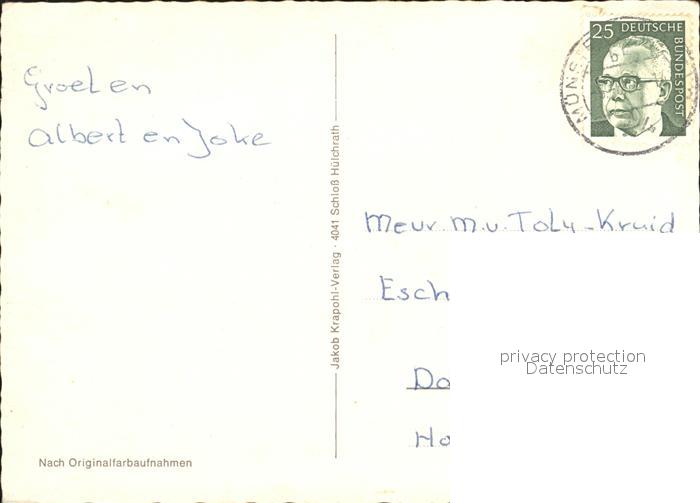 Groeten
Albert en Joke
25 DEUTSCHE
BUNDESPOST
MÜNSTE
Jakob Krapohl-Verlag · 4041 Schloß Hülchrath
Mevr. M.v. Toly-Kruid
Esch
Do
Ho
privacy protection
Datenschutz
Nach Originalfarbaufnahmen